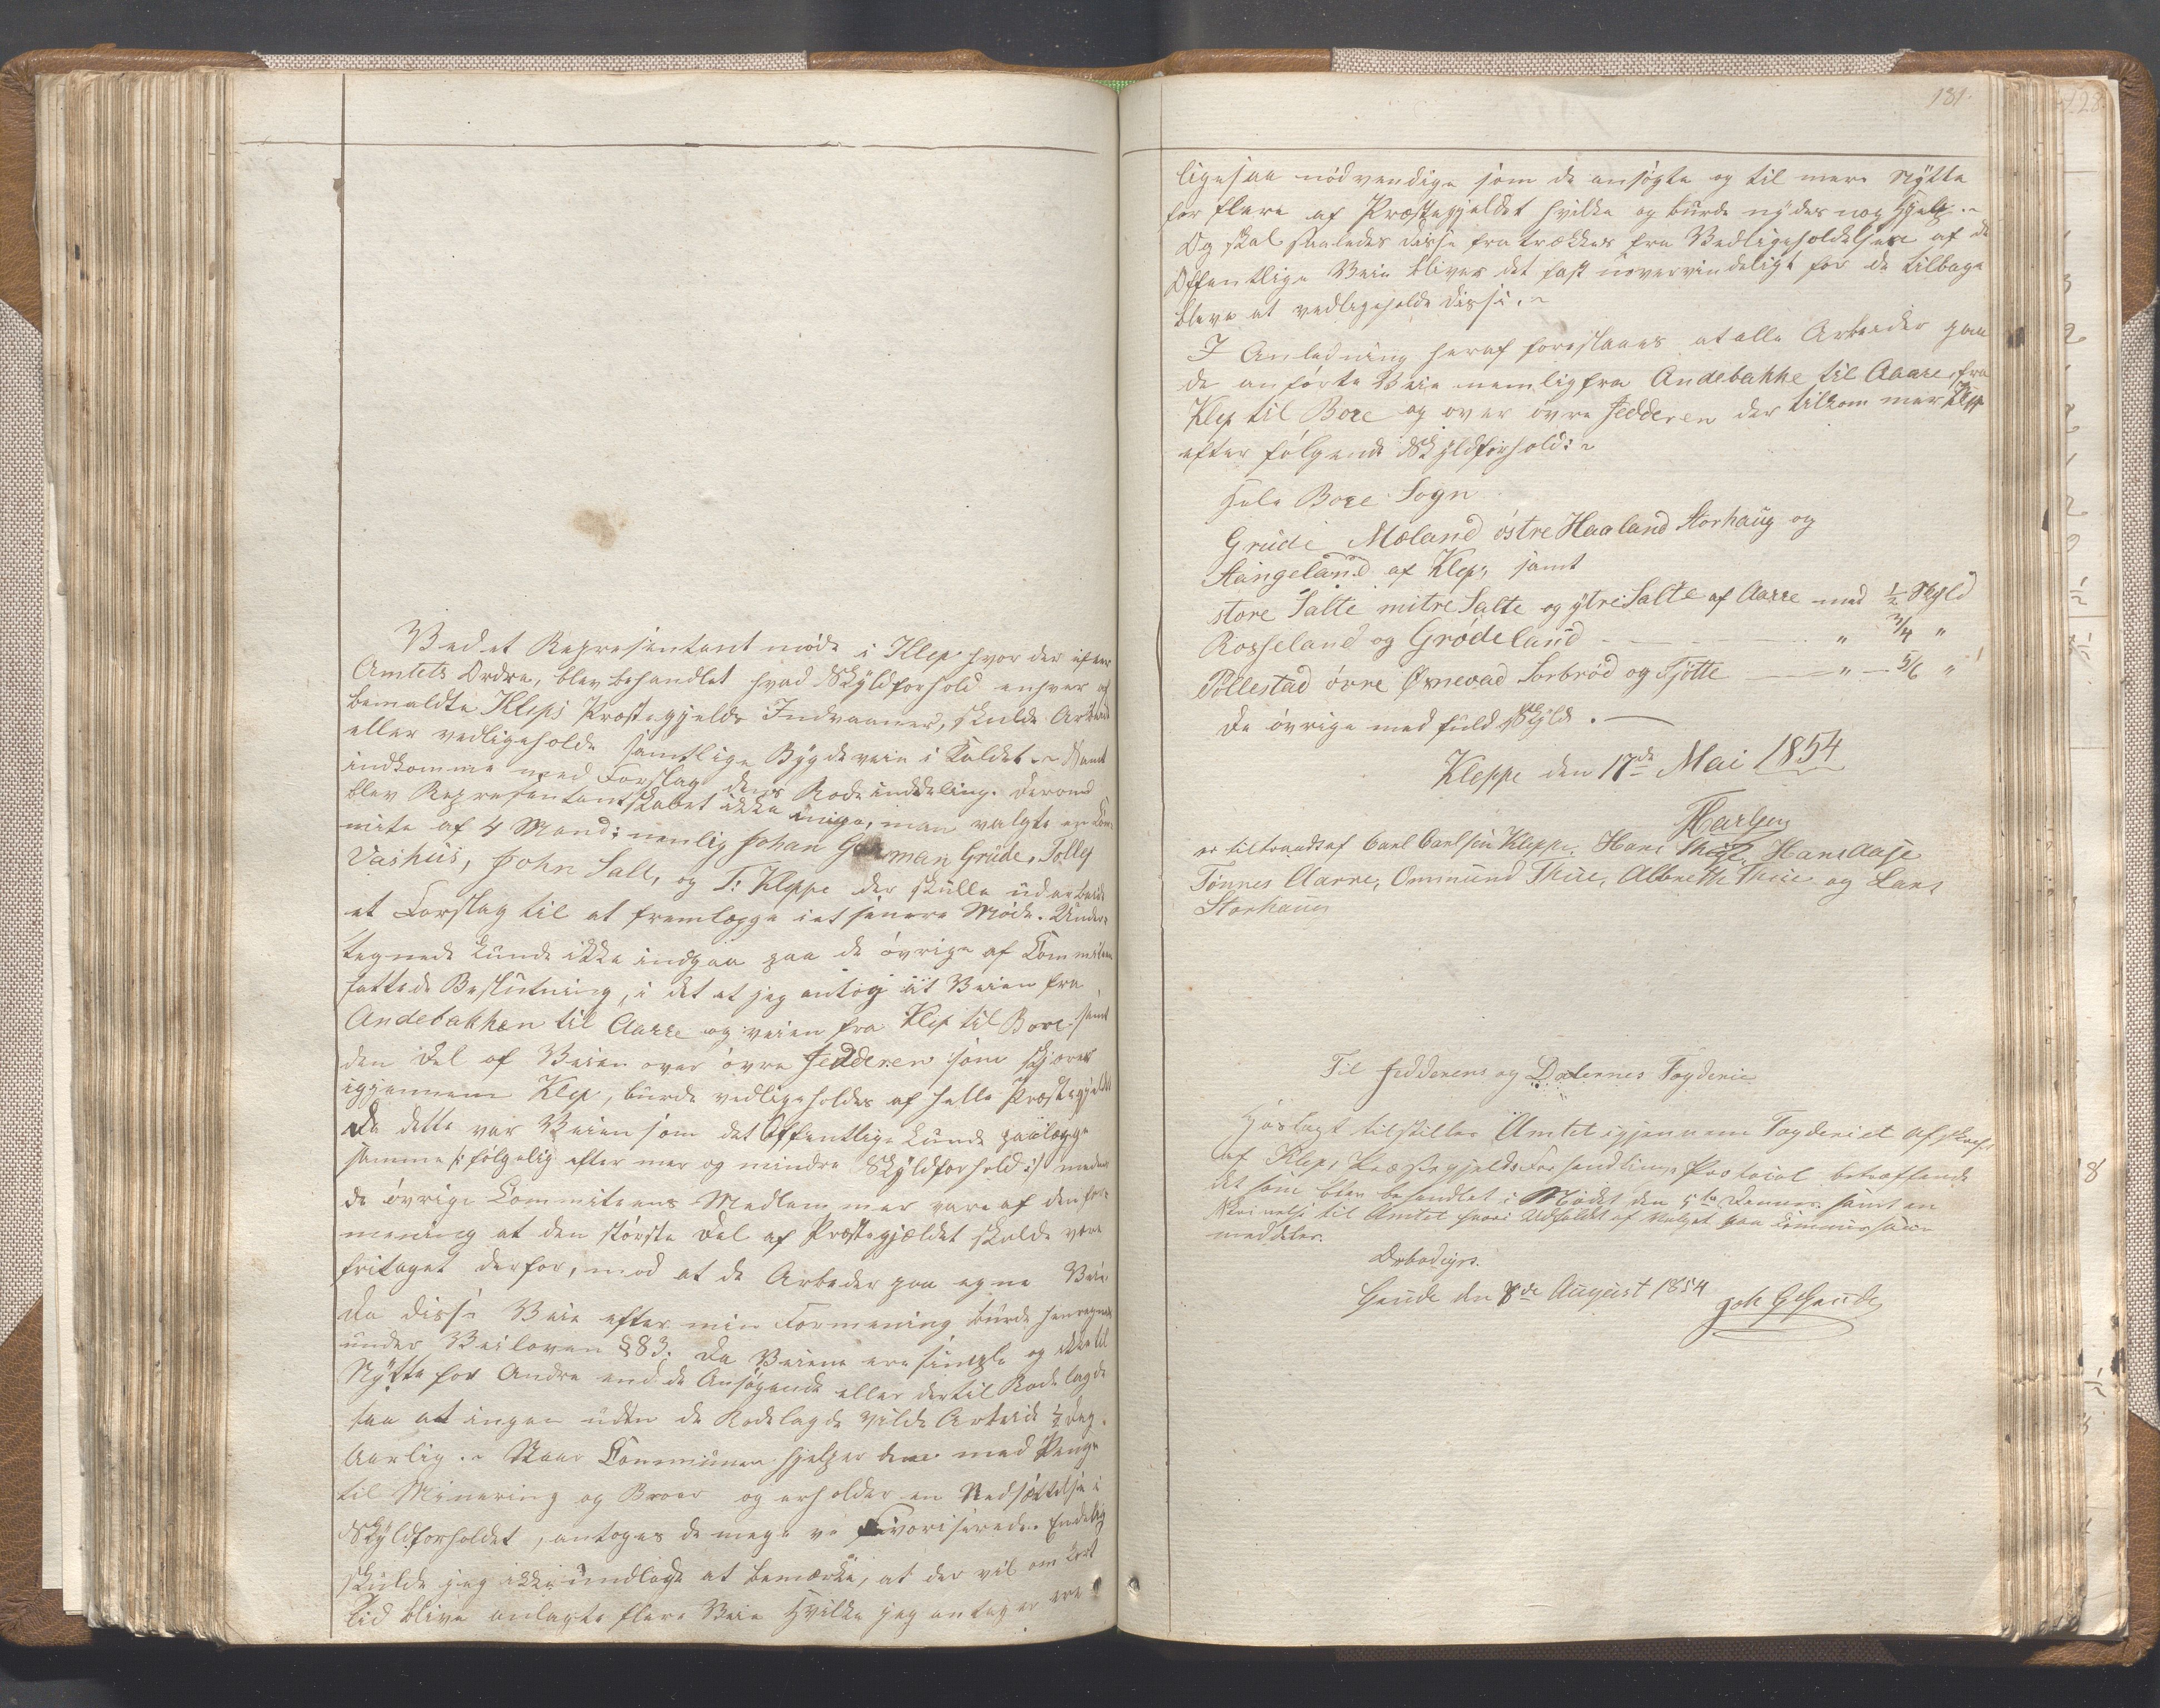 Ved et Representant møde i Klep hvor der efter
Amtets Ordre, blev behandlet hvad Skyldforhold enhver af
bemeldte Kleps Præstegjelds Indvaaner, skulde Arbeide
eller vedligeholde samtlige Bygdeveie i Kaldet. Samt
indkomme med Forslag dens Rodeinddeling. Derom
blev Representantskabet ikke enige, man valgte en Com-
mite af 4 Mand: nemlig Johan G Grude, Tolley
Vashus, John Sall, og T: Kleppe der skulle udarbeide
et Forslag til at fremlegge i et senere Møde. Under-
tegnede kunde ikke indgaa paa de øvrige af Commiteen
fattede Beslutning, i det at jeg antog at Veien fra
Andebakken til Aarre og veien fra Klep til Bore samt
den Del af Veien over øvre Jedderen som skjæres
igjennem Klep, burde vedligeholdes af helle Præstegjeldet
Da dette var Veien som det Offentlige kunde paalegge
samme /: følgelig efter mer og mindre Skyldforhold :/ medens
de øvrige Commiteens Medlemmer vare af den for-
mening at den største Del af Præstegjældet skulde være
fritaget derfor, mod at de Arbeder paa egne Veie
Da disse Veie efter min Formening burde henregnes
under Veiloven §83. Da Veiene ere simple og ikke til
Nytte for Andre end de Ansøgende eller dertil Rodelagde
saa at ingen uden de Rodelagde vilde Arbeide ½ Dag
Aarlig. Naar Communen hjelper dem med Penge
til Minering og Broer og erholder en Nedsættelse i
Skyldforholdet, antoges de meget Favoriserede. Endelig
skulde jeg ikke undlade at bemærke, at der vil om kort
tid blive anlagte flere Veie Hvilke jeg antager ere
181
ligesaa nødvendige som de ansøgte og til mere Nytte
for flere af Præstegjeldet hvilke og burde nydes nog Hjelp.
Og skal saaledes disse fratrækkes fra Vedligeholdelsen af de
Offentlige Veie bliver det fast uovervindeligt for de tilbage
bleve at vedligeholde disse.
I Anledning heraf foreslaaes at alle Arbeider paa
de anførte Veie nemlig fra Andebakke til Aaare, fra
Klep til Bore og over øvre Jedderen der tilkommer Klep
efter følgende Skyldforhold:
Hele Bore Sogn
Grude Mæland østre Haaland Storhaug og
Stangeland af Klep, samt
store Salte mitre Salte og ytre Salte af Aarre med ½ Skyld
Rosseland og Grødeland " ¾ "
Pollestad øvre Øxnevad Sørbrød og Tjøtte " 5/6 "
De øvrige med fuld Skyld.
Kleppe den 17de Mai 1854
er tiltraadt af Carl Carlsen Kleppe, Hans Thue, Hans Aase
Tønnes Aarre, Ommund Thue, Albreth Thue og Lars
Storhaug
Til Jedderens og Dalernes Fogderie
Hoslagt tilstilles Amtet igjennem Fogderiet Afskrift
af Kleps Præstegjelds Forhandlings Protocol betræffende
det som blev behandlet i Mødet den 5te Dennes samt en
Skrivelse til Amtet hvori Udfaldet af Valget paa Commissair
meddeles.
Ærbødigst.
Grude den 8de August 1854
Joh G Grude